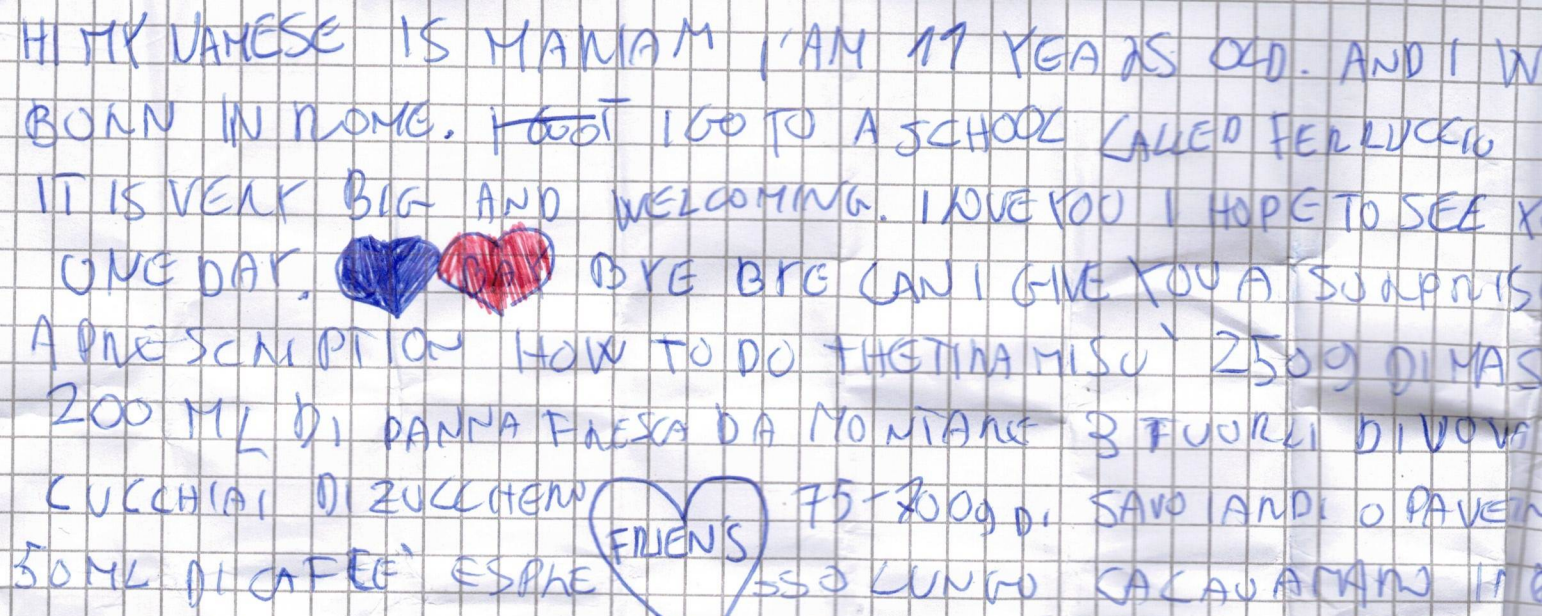 HI MY NAMESE IS MARIAM I'AM 11 YEARS OLD. AND I W
BORN IN ROME. I GO TO A SCHOOL CALLED FERRUCCIO
IT IS VERY BIG AND WELCOMING. I LOVE YOU I HOPE TO SEE Y
ONE DAY. BAY BYE BYE CAN I GIVE YOU A SURPRIS
A PRESCRIPTION HOW TO DO THE TIRAMISÙ 250g DI MAS
200 ML DI PANNA FRESCA DA MONTARE 3 TUORLI DI UOVA
CUCCHIAI DI ZUCCHERO FRIENS 75-100g DI SAVOIARDI O PAVE
50 ML DI CAFFEÈ ESPRE SSO LUNGO CACAO AMARO IN